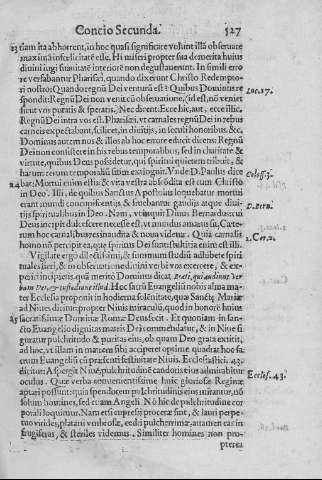 Concio Secunda. 527
23 tiam ita abhorrent, in hoc quasi significare volunt illã obseruare
maximã infelicitatẽ esse. Hi miseri propter sua demerita huius
diuini iugi suauitatẽ interiorẽ non degustauerunt. In simili erro
re versabantur Pharisæi, quando dixerunt Christo Redempto-
ri nostro: Quando regnũ Dei venturũ est? Quibus Dominus re
spondit: Regnũ Dei non venit cũ obseruatione, (id est, nõ veniet
sicut vos putatis & speratis). Nec dicent: Ecce hic, aut, ecce illic.
Regnũ Dei intra vos est. Pharisæi, vt carnales regnũ Dei in rebus
carneis expectabant, scilicet, in diuitijs, in seculi honoribus &c.
Dominus autem nos & illos ab hoc errore educit dicens: Regnũ
Dei non consistere in his rebus temporalibus, sed in charitate &
virtute, quibus Deus possidetur, qui spiritui quietem tribuit, &
harum rerum temporaliũ sitim extinguit. Vnde D. Paulus dice
24 bat: Mortui enim estis & vita vestra abscõdita est cum Christo
in Deo. Illi, de quibus Sanctus Apostolus loquebatur mortui
erant mundi concupiscentijs, & fruebantur gaudijs atque diui-
tijs spiritualibus in Deo. Nam, vt inquit Diuus Bernardus: cui
Deus incipit dulcescere necesse est, vt mundus amarus sit, Cæte-
rum hoc carnalibus res inaudita & noua videtur: Quia carnalis
homo nõ percipit ea, quæ spiritus Dei sunt: stultitia enim est illi.
Vigilate ergo dilectissimi, & summum studiũ adhibete spiri-
tuales fieri, & in obseruatione diuini verbi vos exercere, &
Beati, qui audiunt ver-
bum Dei, & custodiunt illud. Hoc sacrũ Euangeliũ nobis alma ma-
ter Ecclesia proponit in hodierna solẽnitate, quæ Sanctæ Mariæ
ad Niues dicitur propter Niuis miraculũ, quod in honorẽ huius
25 sacratissimæ Dominæ Romæ Deus fecit. Et quoniam in san-
cto Euangelio dignitas matris Dei cõmendatur, & in Niue fi-
guratur pulchritudo & puritas eius, ob quam Deo grata extitit,
ad hoc, vt illam in matrem sibi acciperet optime quadrat hoc sa-
crum Euangeliũ cũ præsenti festiuitate Niuis. Ecclesiastici. 43.
dicitur: Aspergit Niuẽ, pulchritudinẽ candoris eius admirabitur
oculus. Quæ verba conuenientissime huic gloriosæ Reginæ
aptari possunt: quia splendorem pulchritudinis eius mirantur, nõ
solùm homines, sed etiam Angeli. Nõ hic de pulchritudine cor
porali loquimur. Nam etsi cupressi proceræ sint, & lauri perpe-
tuo virides, platani vmbrosæ, cedri pulcherrimæ, attamen eas in
frugiferas, & steriles videmus. Similiter homines non pro-
pterea
Luc. 17.
Coloss. 3.
D. Bern.
1. Cor. 2.
Eccles. 43.